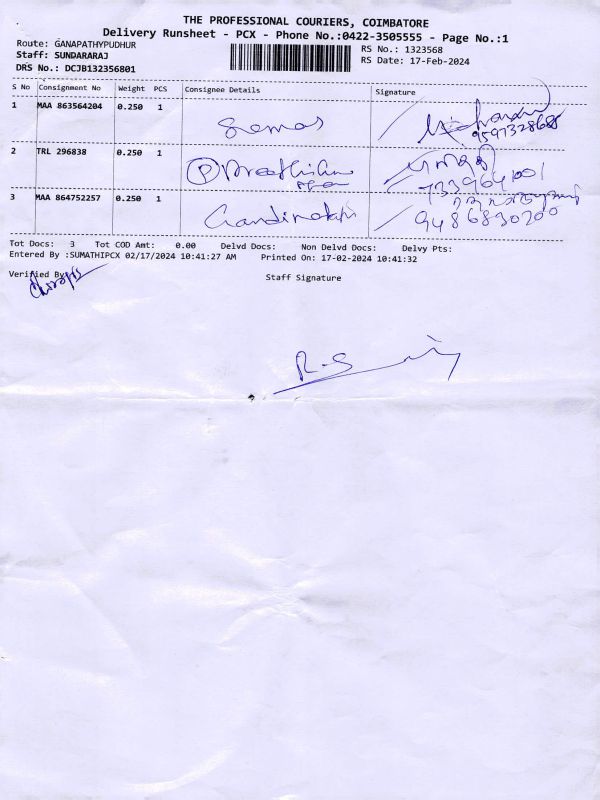 THE PROFESSIONAL COURIERS, COIMBATORE
Delivery Runsheet - PCX - Phone No.:0422-3505555 - Page No.:1
Route: GANAPATHYPUDHUR RS No.: 1323568
Staff: SUNDARARAJ RS Date: 17-Feb-2024
DRS No.: DCJB132356801
S No Consignment No Weight PCS Consignee Details Signature
1 MAA 863564204 0.250 1
2 TRL 296838 0.250 1
3 MAA 864752257 0.250 1
9486830200
Tot Docs: 3 Tot COD Amt: 0.00 Delvd Docs: Non Delvd Docs: Delvy Pts:
Entered By :SUMATHIPCX 02/17/2024 10:41:27 AM Printed On: 17-02-2024 10:41:32
Verified By Staff Signature